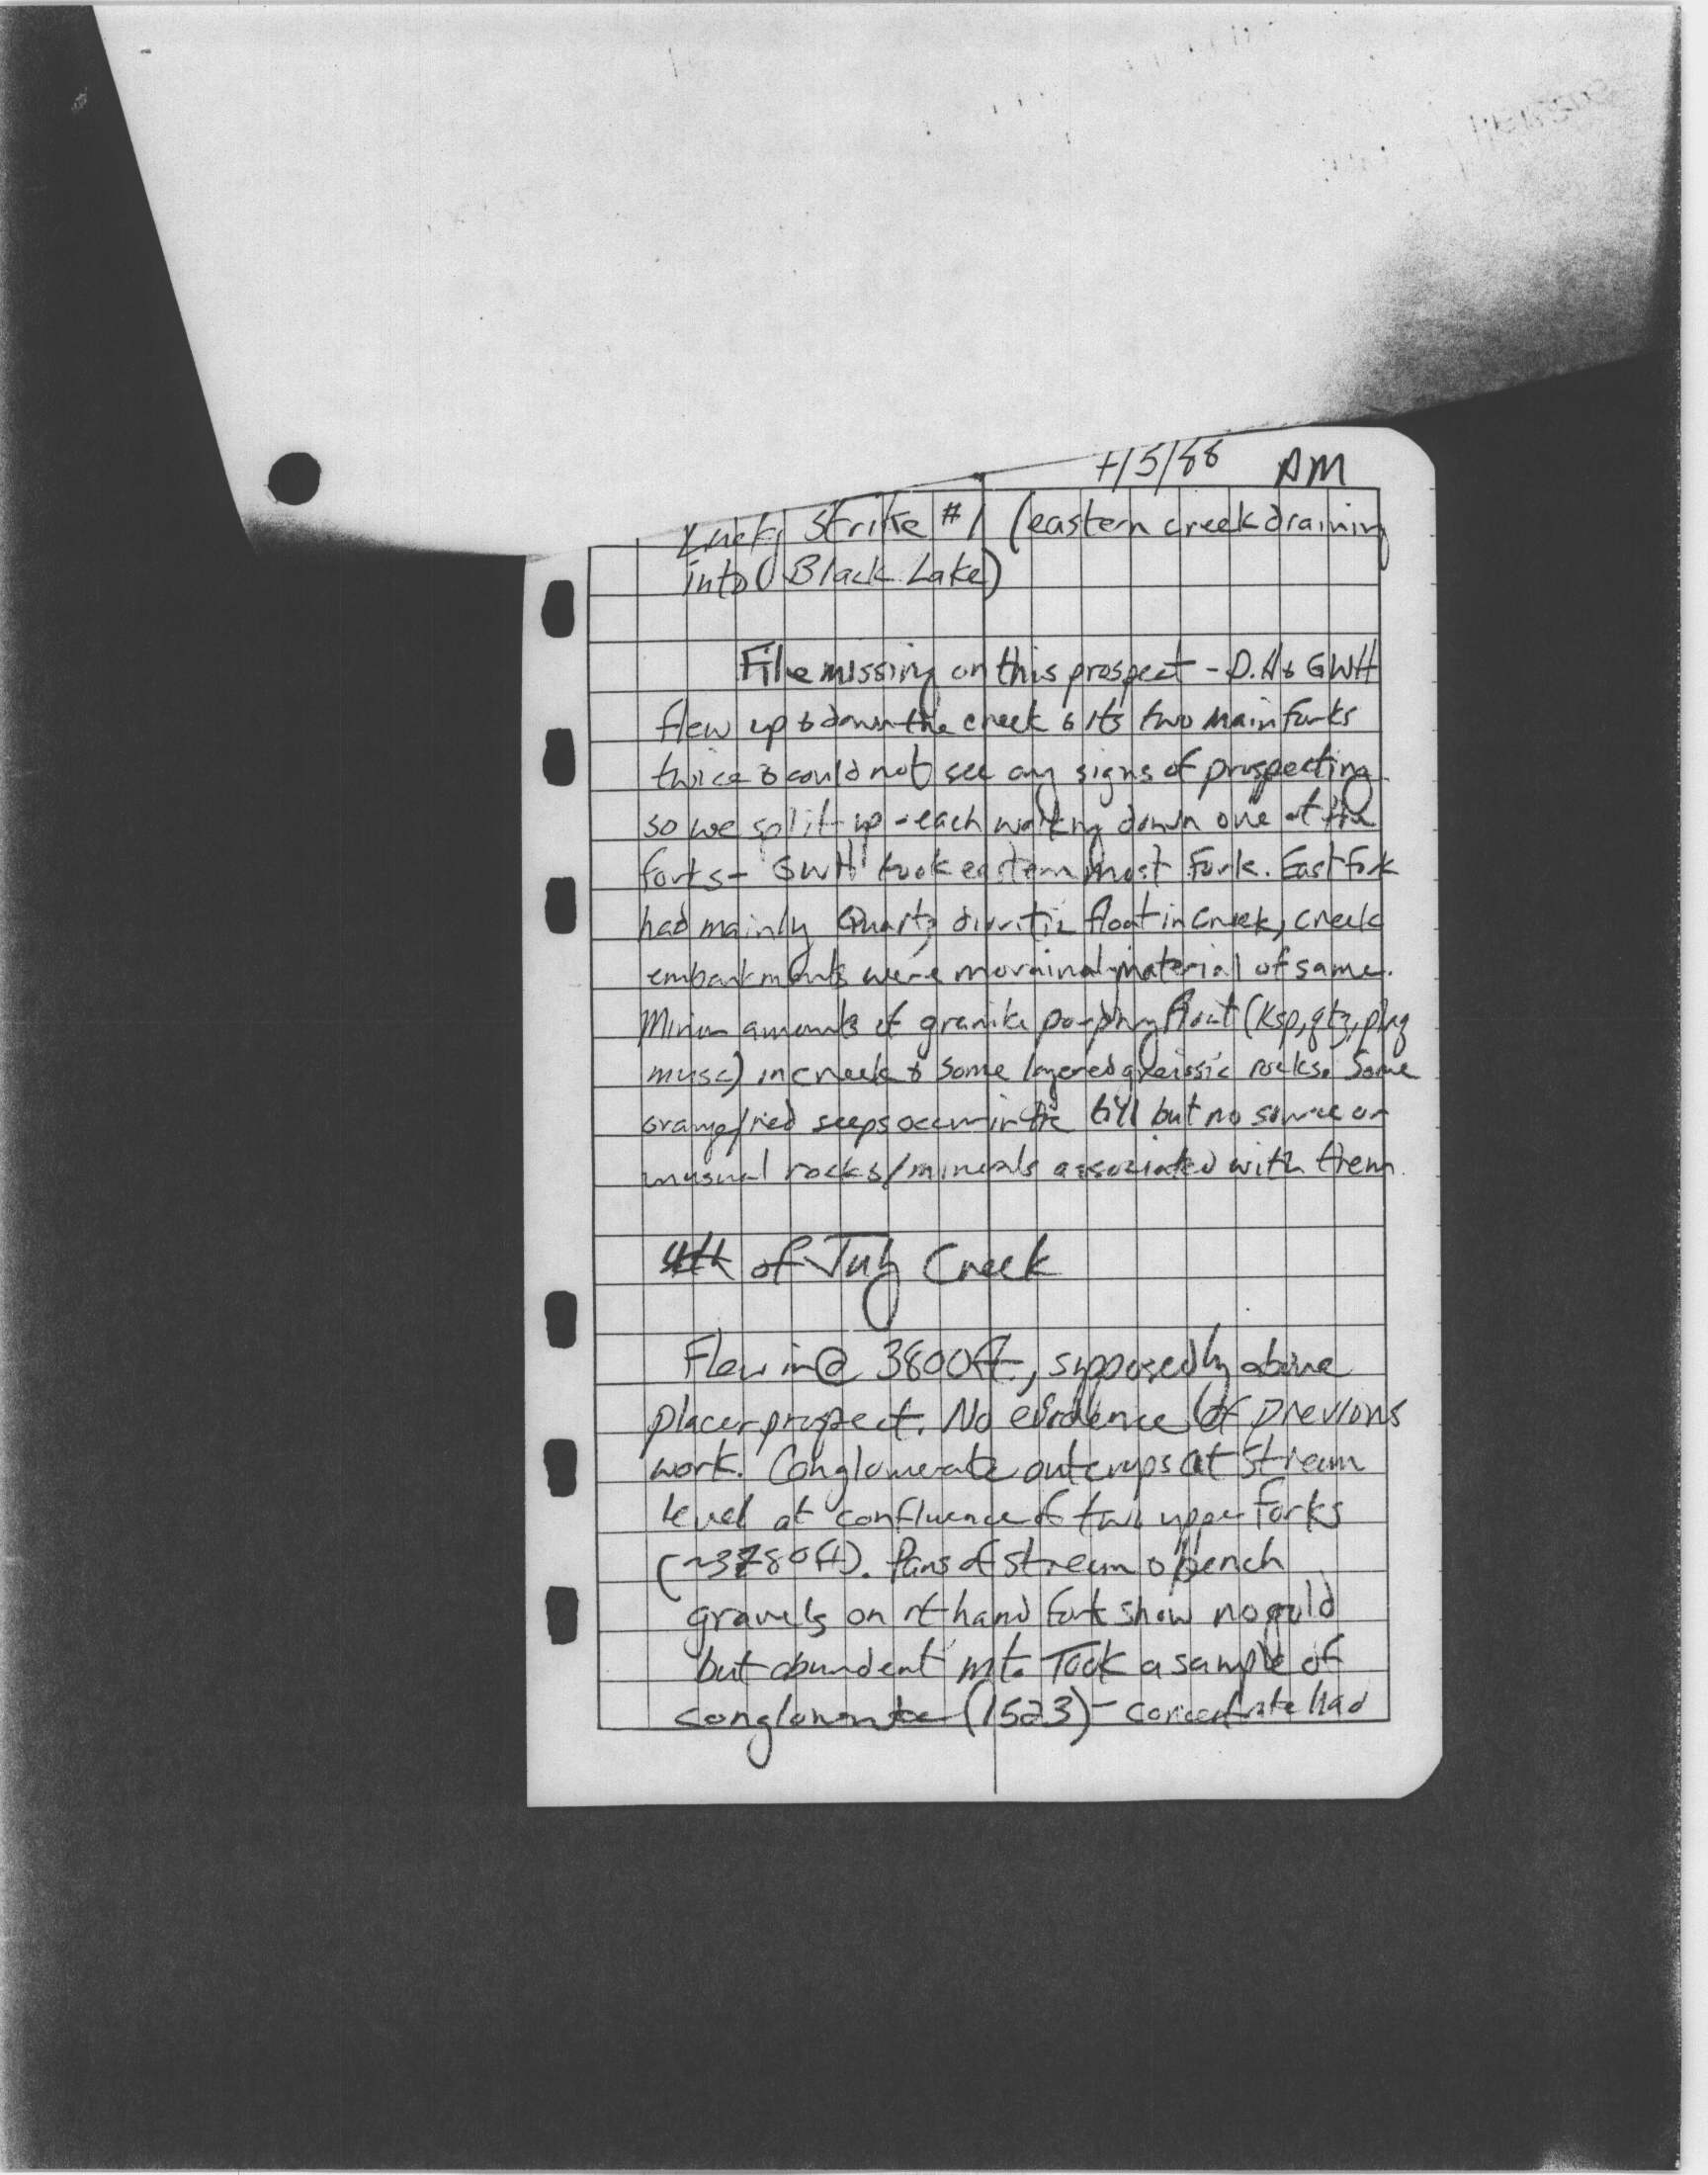 7/5/88 AM
Lucky Strike #1 (eastern creek draining
into Black Lake)
File missing on this prospect - D.H & GWH
flew up & down the creek & its two main forks
twice & could not see any signs of prospecting
so we split up - each walking down one of the
forks - GWH took eastern most Fork. East fork
had mainly Quartz dioritic float in creek, creek
embankments were morainal material of same.
Minor amounts of granite porphry float (Ksp, qtz, plag
musc) in creek & some layered gneissic rocks. Some
orange/red seeps occur in the till but no source or
unusual rocks/minerals associated with them.
4th of July Creek
Flew in @ 3800 ft, supposedly above
placer prospect. No evidence of previous
work. Conglomerate outcrops at stream
level at confluence of two upper forks
(~3780 ft). Pans of stream & bench
gravels on rt hand fork show no gold
but abundent mt. Took a sample of
conglomerate (1523) - concentrate had